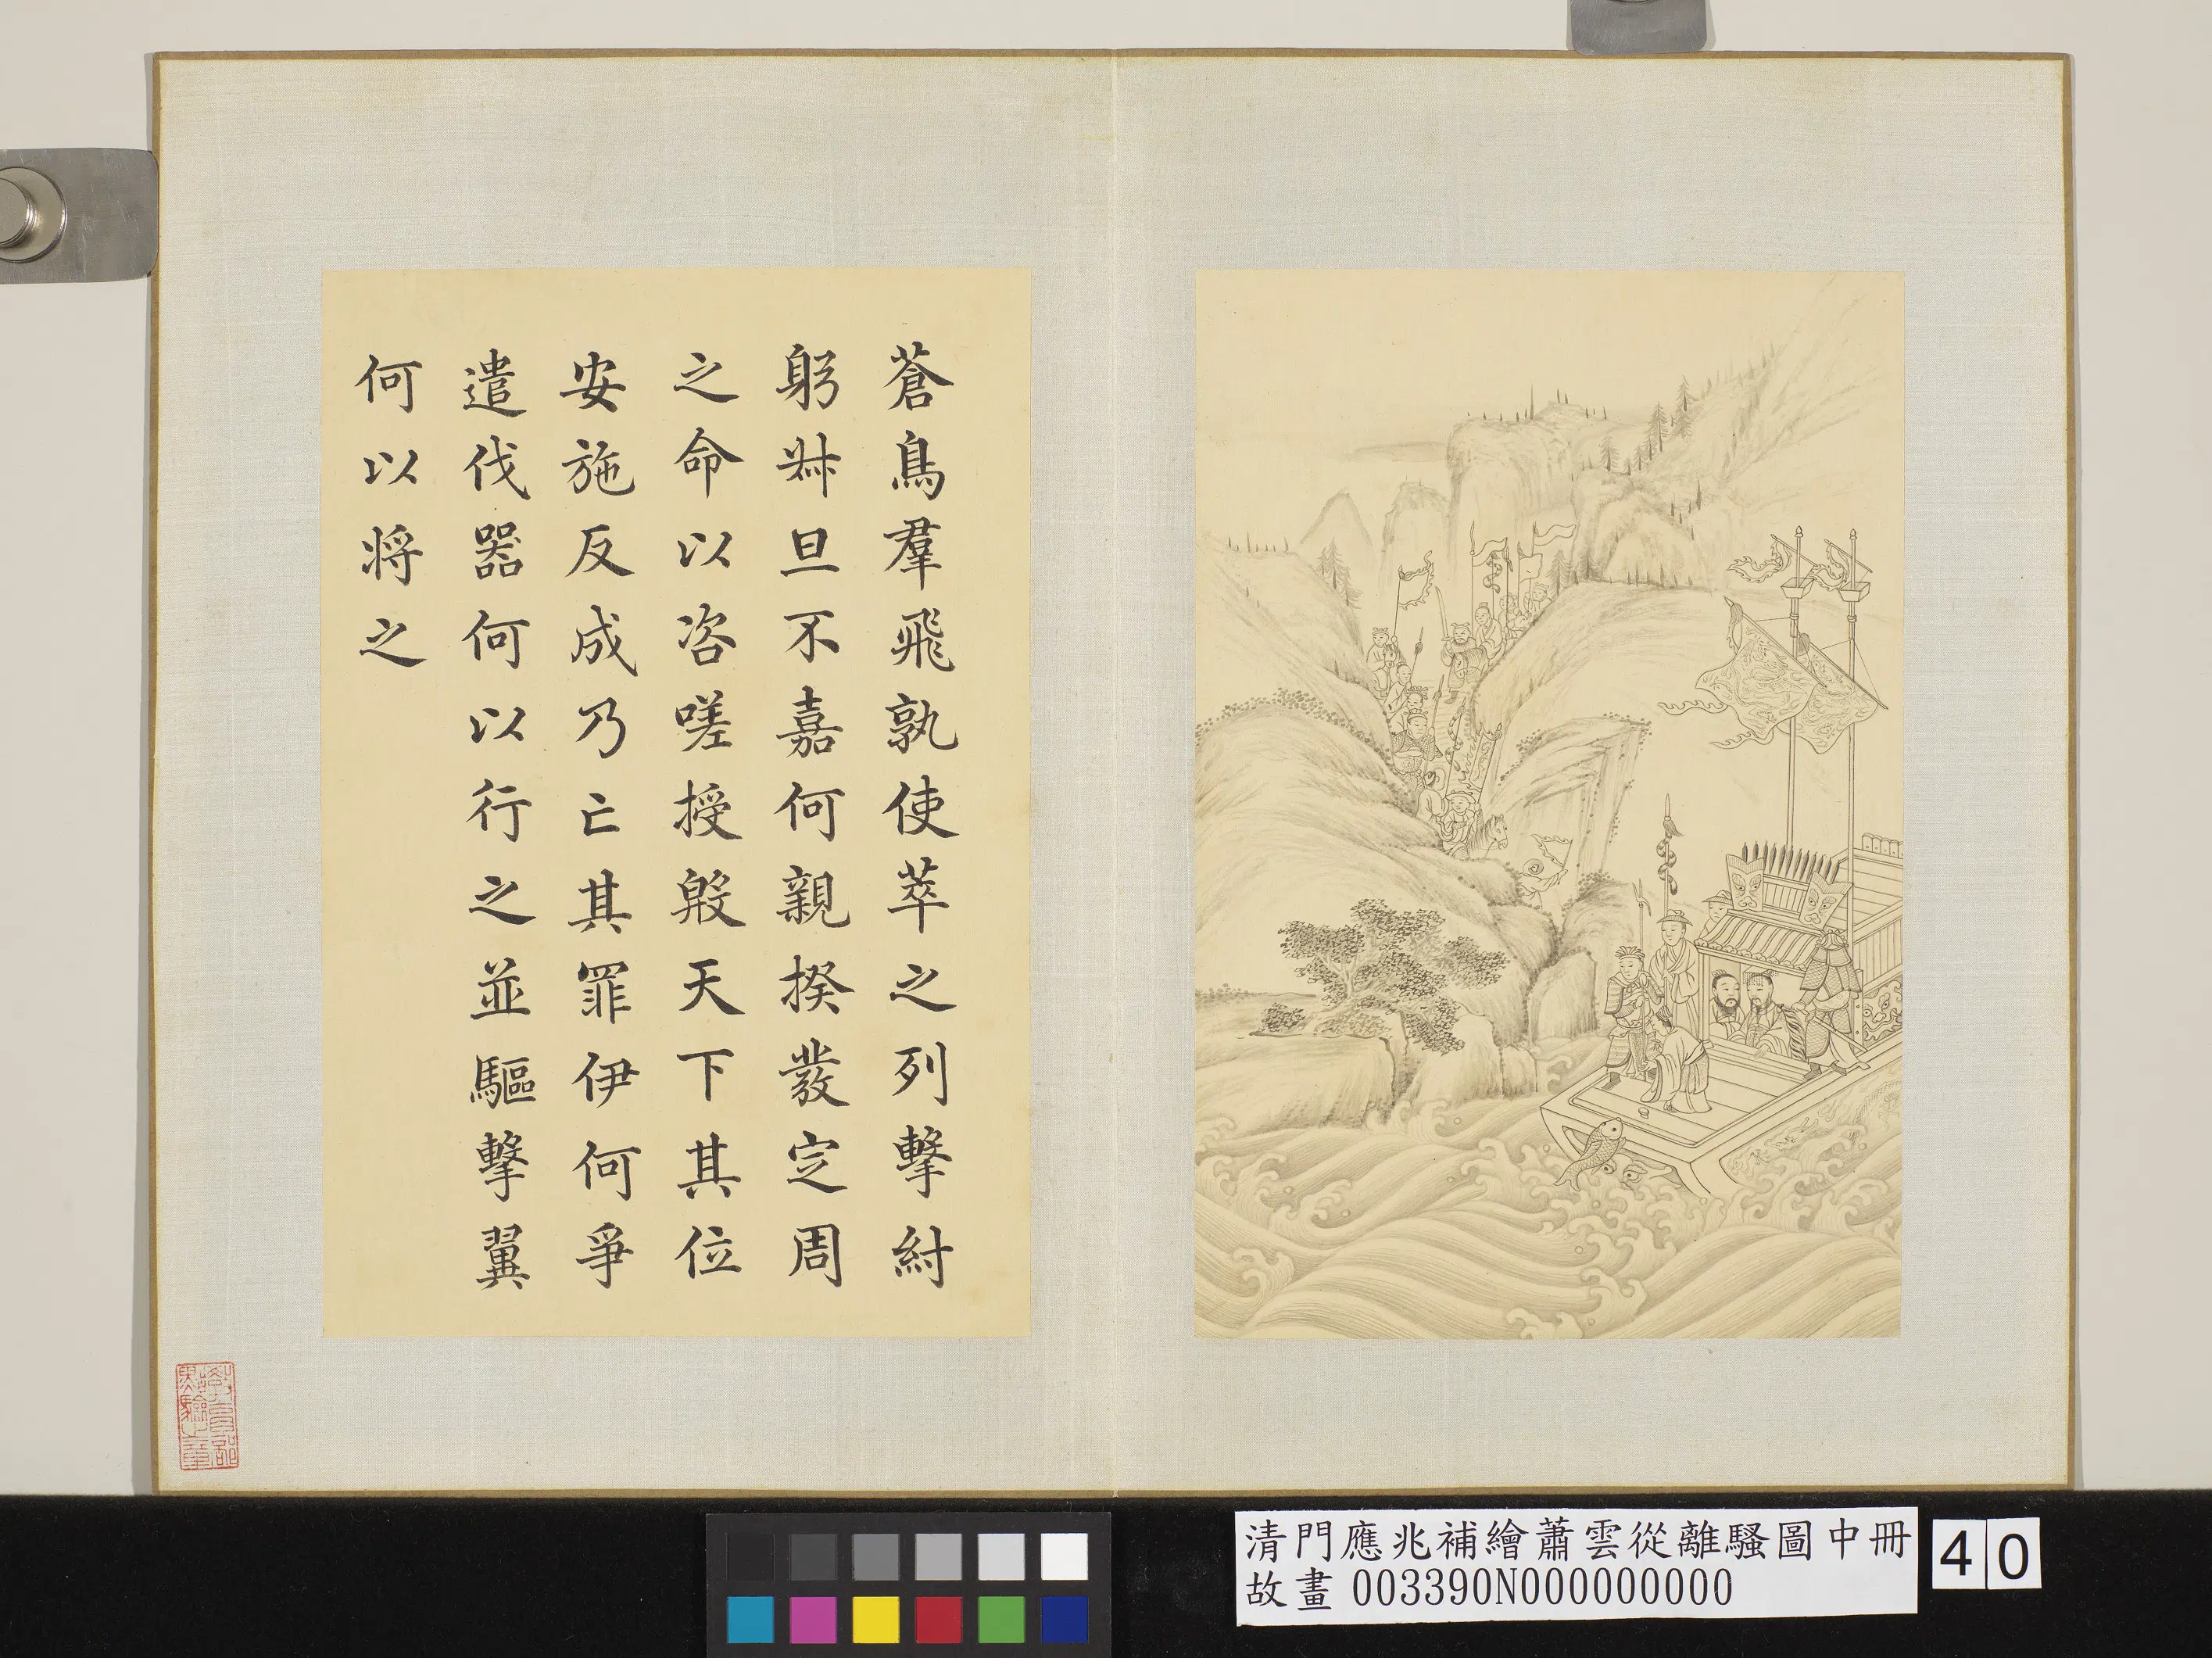 蒼鳥羣飛孰使萃之列擊紂
躬叔旦不嘉何親揆發定周
之命以咨嗟授殷天下其位
安施反成乃亡其罪伊何爭
遣伐器何以行之並驅擊翼
何以將之
清門應兆補繪蕭雲從離騷圖中冊
故畫 003390N000000000
40